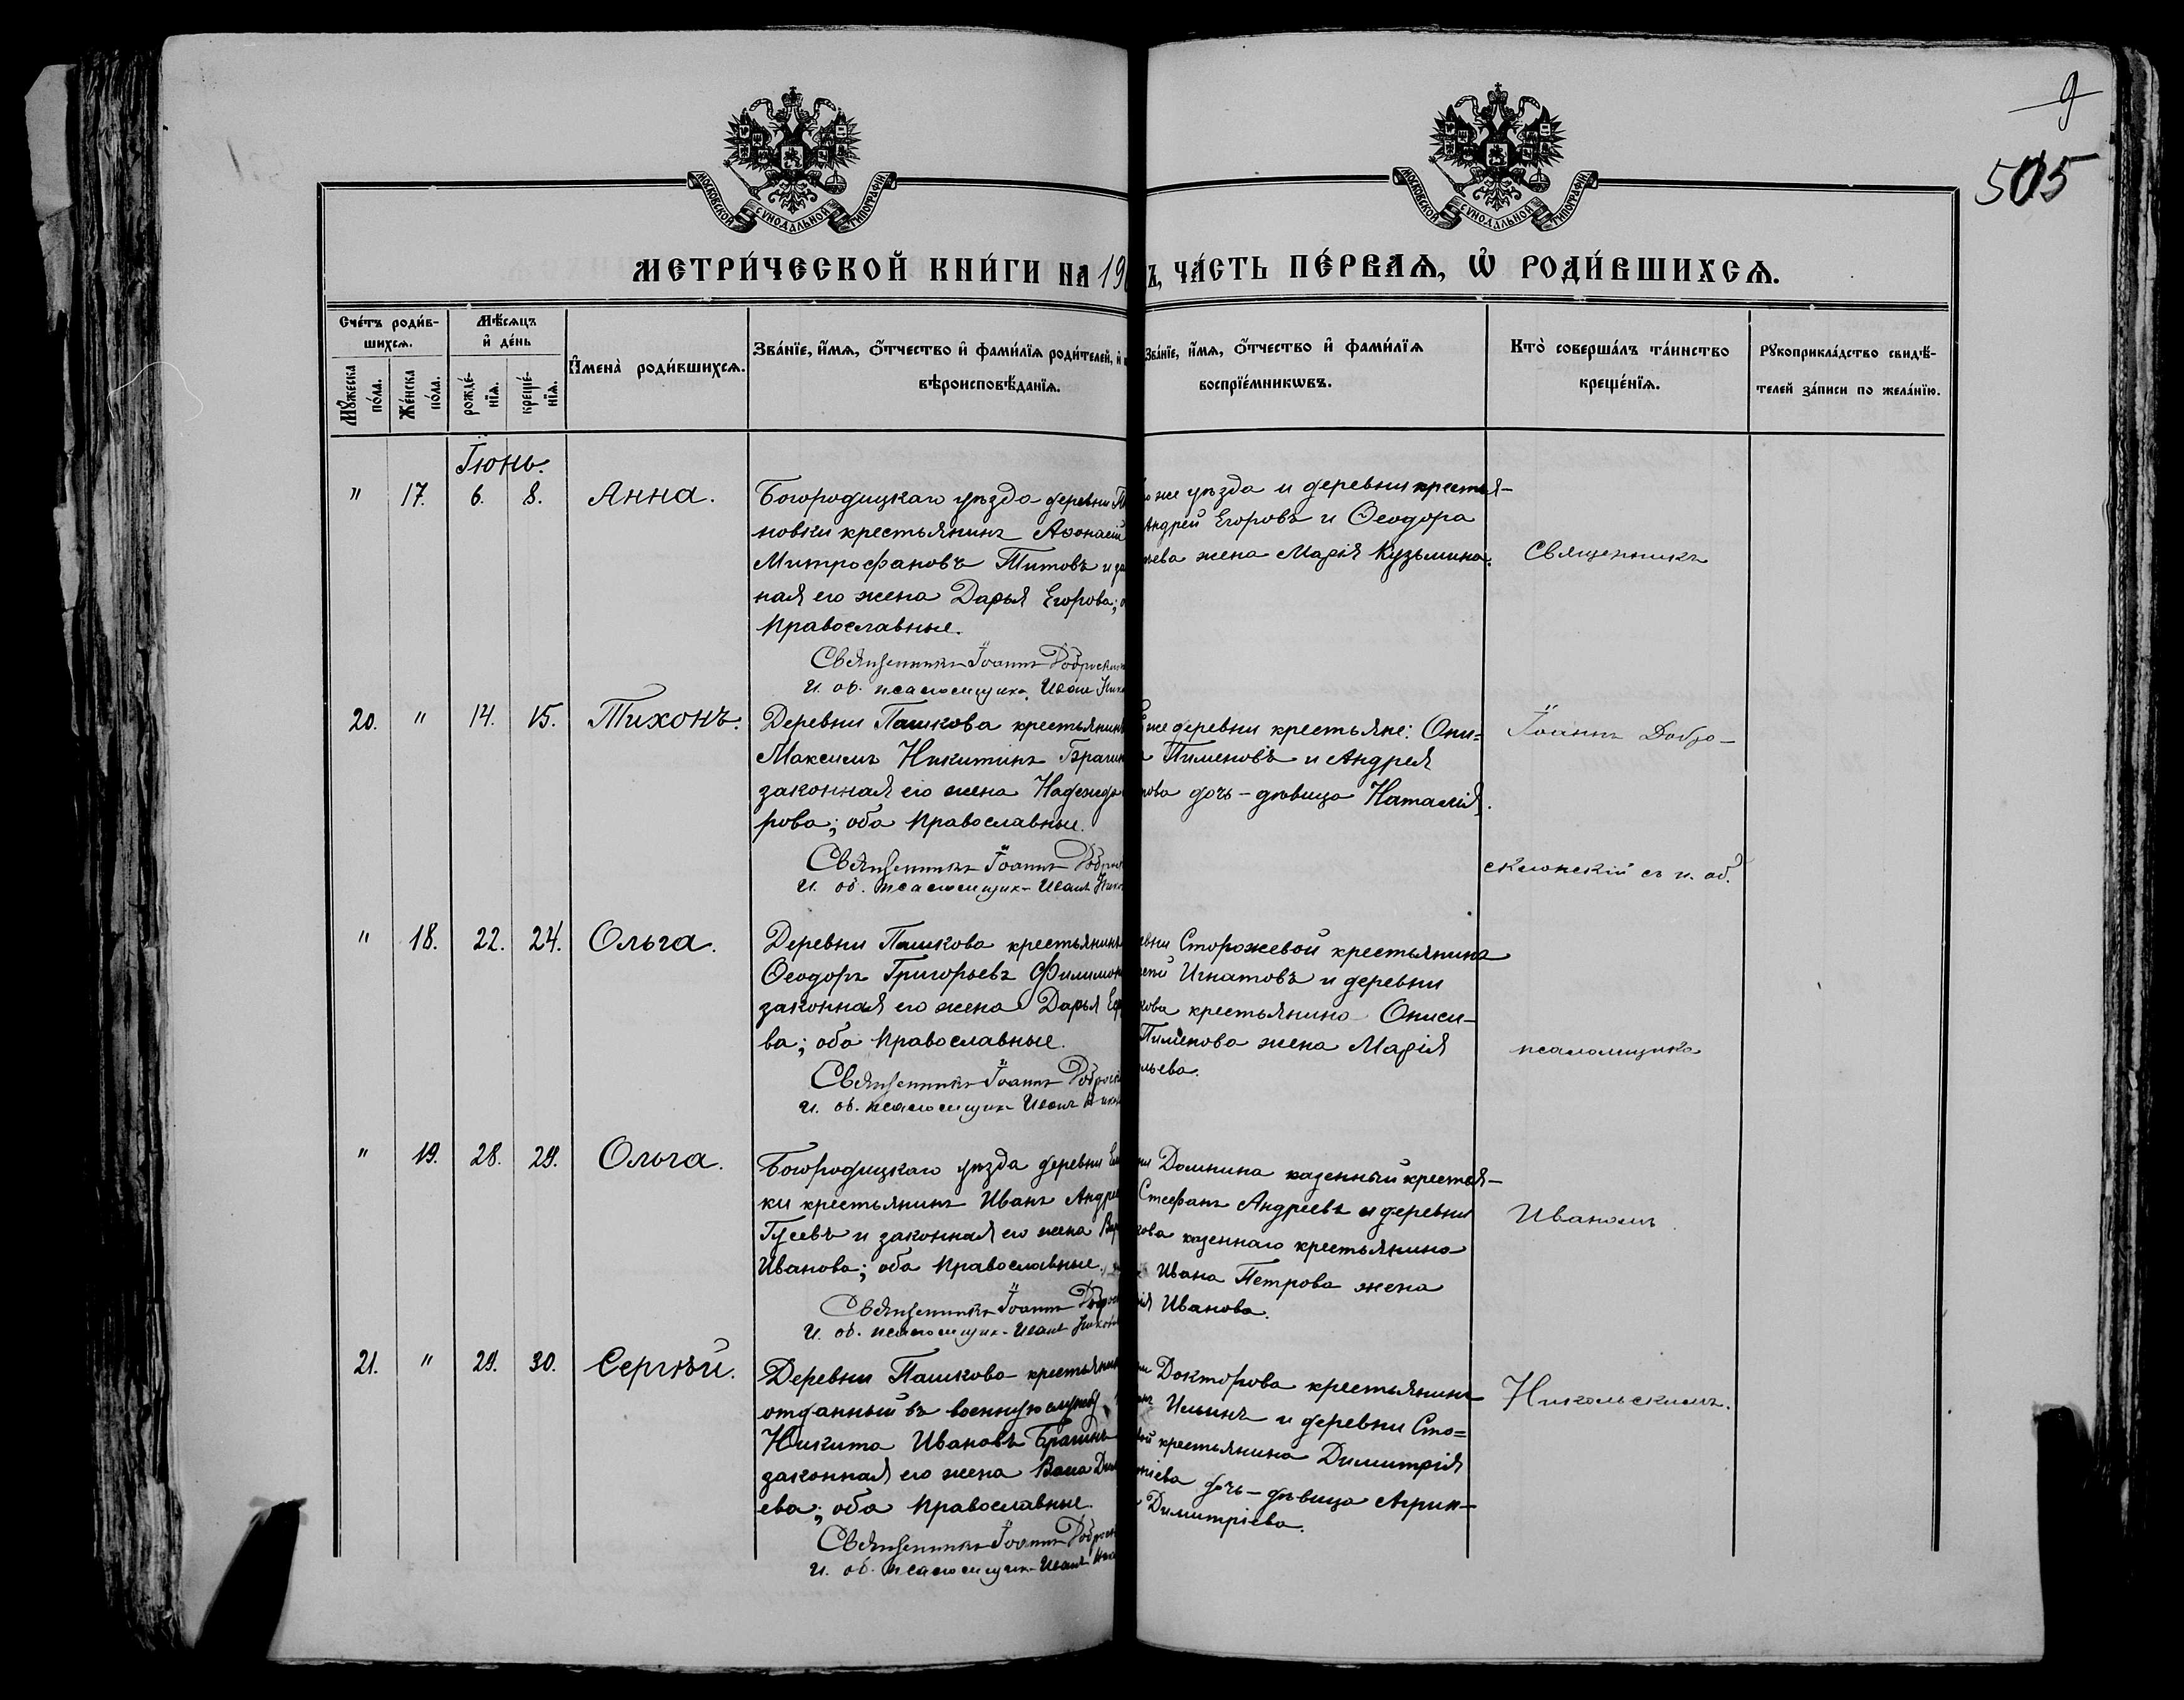 9
505
МОСКОВСКОЙ СѴНОДАЛЬНОЙ ТИПОГРАФІИ
МОСКОВСКОЙ СѴНОДАЛЬНОЙ ТИПОГРАФІИ
МЕТРИ́ЧЕСКОЙ КНИ́ГИ НА 19
Ъ, ЧА́СТЬ ПЕ́РВАѦ, Ѡ҆ РОДИ́ВШИХСѦ.
Сче́тъ роди́в-
шихсѧ.
Мꙋ́жеска по́ла.
Же́нска по́ла.
Мѣ́сѧцъ
и҆ де́нь
рожде́-
нїѧ.
креще́-
нїѧ.
И҆мена̀ роди́вшихсѧ.
Зва́нїе, и҆́мѧ, ѻ҆́тчество и҆ фами́лїѧ роди́телей, и҆
вѣроисповѣ́данїѧ.
Зва́нїе, и҆́мѧ, ѻ҆́тчество и҆ фами́лїѧ
воспрїе́мникѡвъ.
Кто̀ соверша́лъ та́инство
креще́нїѧ.
Рꙋкоприкла́дство свидѣ́-
телей за́писи по жела́нїю.
Іюнь.
" 17. 6. 8. Анна.
Богородицкаго уѣзда деревни
новки крестьянинъ Аѳонасій
Митрофановъ Титовъ и за
ная его жена Дарья Егорова;
православные.
Священникъ Іоаннъ Доброскло
И. об. псаломщика Иванъ Нико
же уѣзда и деревни крестья-
Андрей Егоровъ и Ѳеодора
ева жена Марія Кузьмина.
20. " 14. 15. Тихонъ.
Деревни Пашкова крестьянинъ
Максимъ Никитинъ Брагин
законная его жена Надежда
рова; оба православные.
Священникъ Іоаннъ Добро
И. об. псаломщика Иванъ Нико
же деревни крестьяне: Они=
Пименовъ и Андрея
рова дочь-дѣвица Наталія.
" 18. 22. 24. Ольга.
Деревни Пашкова крестьянинъ
Ѳеодоръ Григорьевъ Филимон
законная его жена Дарья
ва; оба православные.
Священникъ Іоаннъ Доброск
И. об. псаломщика Иванъ Нико
вни Сторожевой крестьянина
Игнатовъ и деревни
кова крестьянина Ониси-
Пименова жена Марія
льева.
" 19. 28. 29. Ольга.
Богородицкаго уѣзда деревни
ки крестьянинъ Иванъ Андре
Гусевъ и законная его жена
Иванова; оба православные.
Священникъ Іоаннъ Доброс
И. об. псаломщика Иванъ Никол
ни Домнина казенный крестья-
Стефанъ Андреевъ и деревни
кова казеннаго крестьянина
Ивана Петрова жена
ія Иванова.
21. " 29. 30. Сергѣй.
Деревни Пашкова крестьянин
отданный въ военную службу
Никита Ивановъ Брагинъ
законная его жена
ева; оба православные.
Священникъ Іоаннъ Доброс
И. об. псаломщика Иванъ Ник
ни Докторова крестьянинъ
Ильинъ и деревни Сто=
вой крестьянина Димитрія
дочь-дѣвица Агрип-
Димитріева.
Священникъ
Іоаннъ Добро-
склонскій съ и. об.
псаломщика
Иваномъ
Никольскимъ.